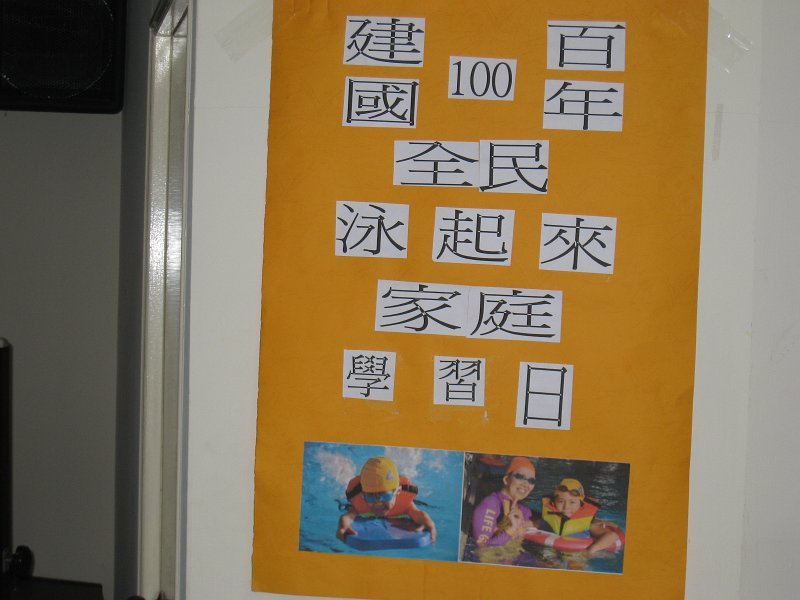 建國 100 百年
全民
泳起來
家庭
學習日
LIFE G